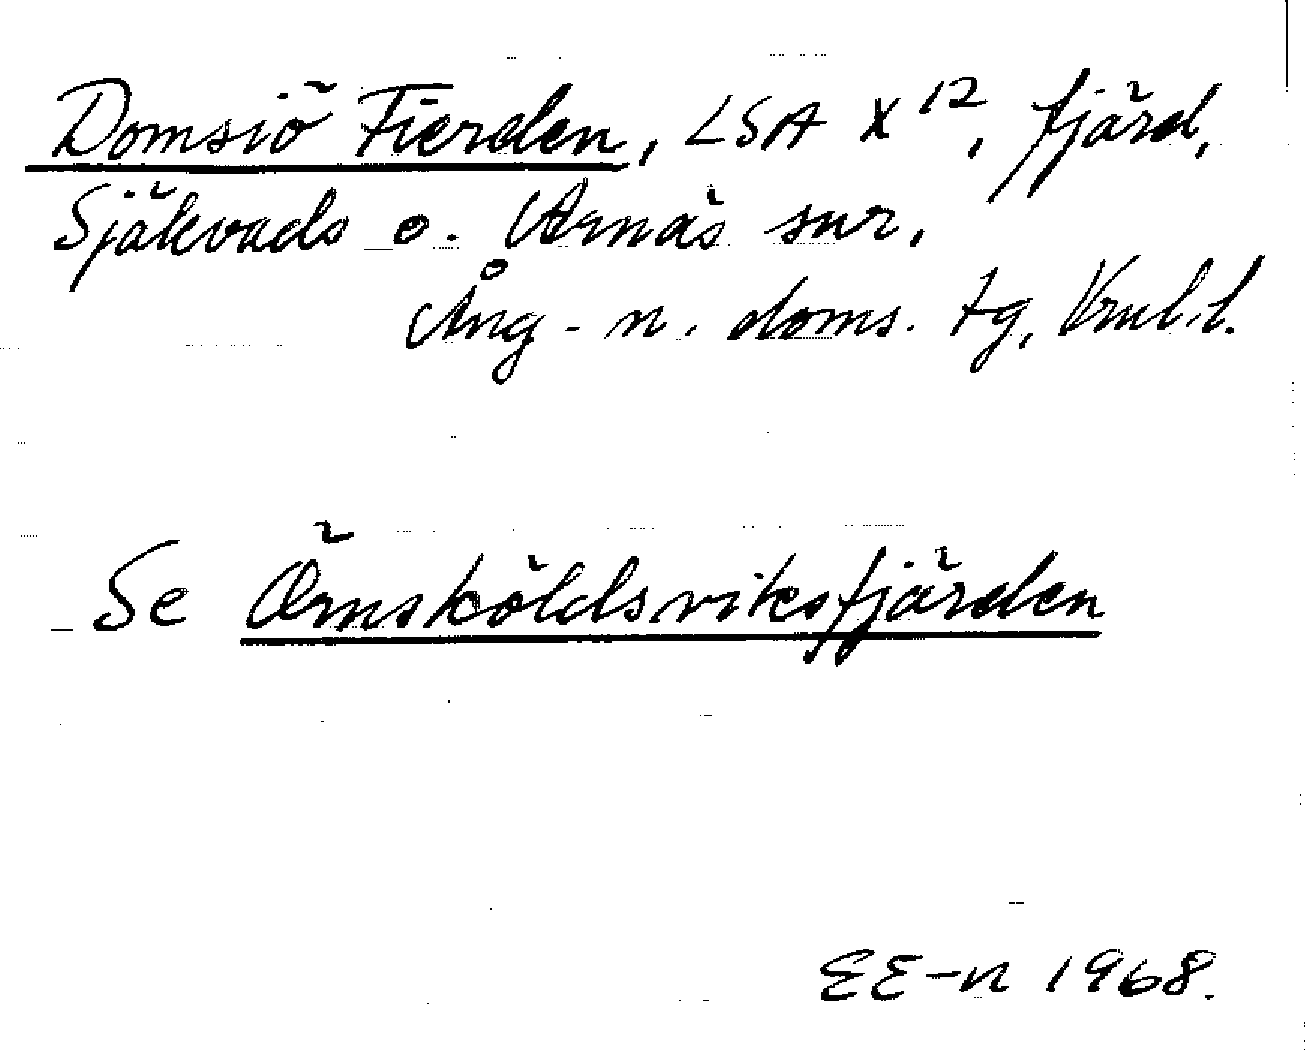 Domsiö Fierden, LSA X 12, fjärd,
Själevads o. Arnäs snr,
Ång-n. doms. tg, Vnl.l.
Se Örnsköldsviksfjärden
EE-n 1968.